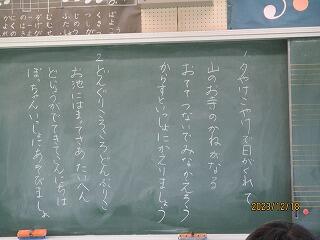 1 夕やけこやけで日がくれて
山のお寺のかねがなる
おててつないでみなかえろう
からすといっしょにかえりましょう
2 どんぐりころころどんぶりこ
お池にはまってさあたいへん
どじょうがでてきてこんにちは
ぼっちゃんいっしょにあそびましょ
2023/12/18